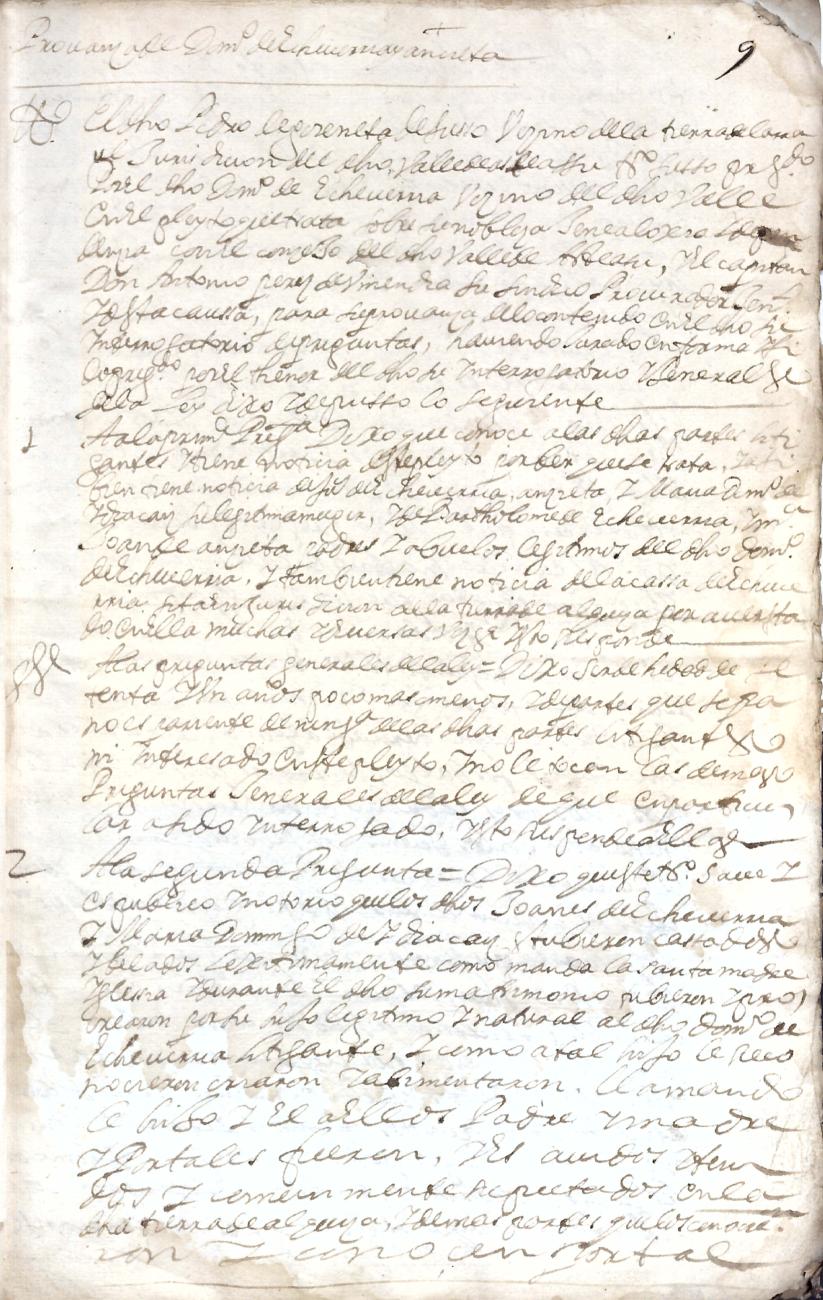 Provanza del Domo de Echeverria y ancieta
9
El dho Pedro de goreneta de susso Vezino de la tierra de
Jurisdicion del dho Valle de tso susso
Por el dho Domo de Echeverria Vezino del dho Valle
en el pleyto que trata sobre su nobleza Genealoxia Y
con el conzejo del dho Valle de Y el capitan
Don Antonio perez de Vinendia su Sindico Procurador Genl
Y desta caussa, para su provanza de lo contenido en el dho su
Interrogatorio de preguntas, haviendo Jurado en forma Y si
por el thenor del dho su Interrogatorio Y General
de la Ley dixo Y depusso lo seguiente
1 A la prima Pregta Dixo que conoce a las dhas partes liti
gantes Y tiene noticia deste pleyto por ber que se trata, Y tan
bien tiene noticia de de Echeverria, ancieta, Y Maria Domo de
Ydiacayz su legitima muger, Y de Bartholome de Echeverria, Y ma
Joan de ancieta padres Y abuelos legitimos del dho domo
de Echeverria. Y tambien tiene noticia de la cassa de Echeve
rria sita en jurisdicion de la tierra de alquiza por aver esta
do en ella muchas Y diversas Vezes Y esto responde
A las preguntas generales de la ley = Dixo ser de hedad de se
tenta Y Un años poco mas o menos, Y de partes que sepa
no es pariente de ningo de las dhas partes litigantes
ni Interesado en este pleyto, Y no le tocan las demas
Preguntas Generales de la ley de que en particu
lar a sido Interrogado, Y esto responde a ellas
2 A la segunda Pregunta = Dixo que este to. save Y
es publico Y notorio que los dhos Joanes de Echeverria
Y Maria Domingo de Ydiacayz estubieron cassados
Y belados legitimamente como manda la santa madre
Yglesia Y durante el dho su matrimonio tubieron Y pro
crearon por su hijo legitimo Y natural al dho domo de
Echeverria litigante, Y como a tal hijo le reco
nocieron criaron Y alimentaron. llamando
le hijo Y El a ellos Padre Y madre
Y Por tales fueron, Y es avidos theni
dos Y comun mente reputados en la
dha tierra de alquiza, Y demas partes que los conocie
ron Y conocen por tal